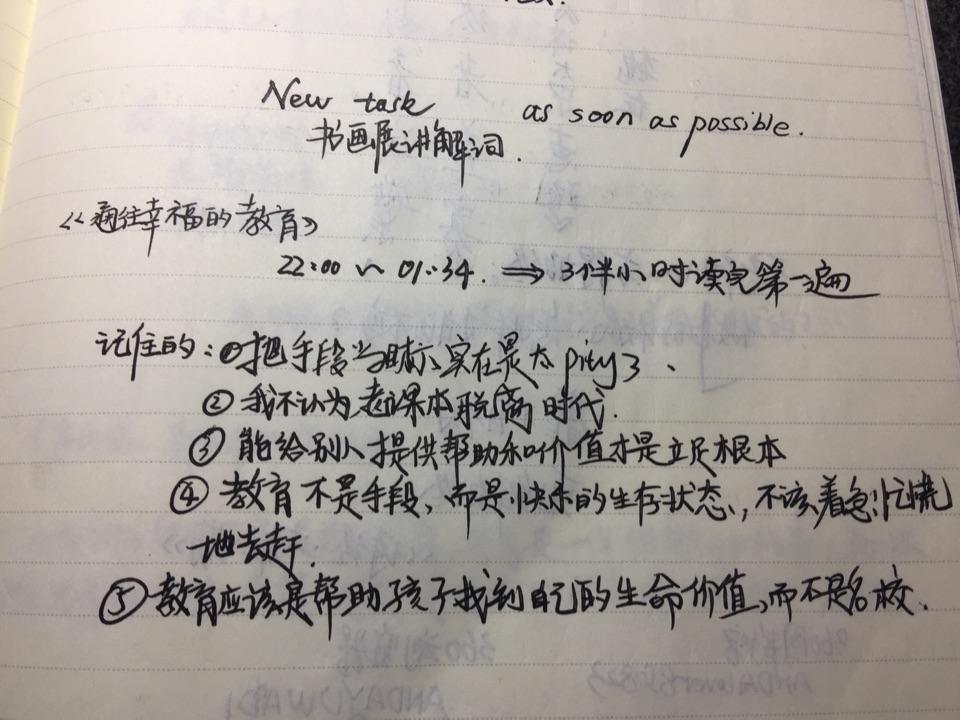 New task as soon as possible.
书画展讲解词.
《通往幸福的教育》
22:00~01:34. ⇒ 3个半小时读完第一遍
记住的:①把手段当目标,实在是太pity了、
②我不认为老课本脱离时代.
③能给别人提供帮助和价值才是立足根本
④教育不是手段,而是快乐的生存状态,不该着急忙慌
地去赶.
⑤教育应该是帮助孩子找到自己的生命价值,而不是名校、